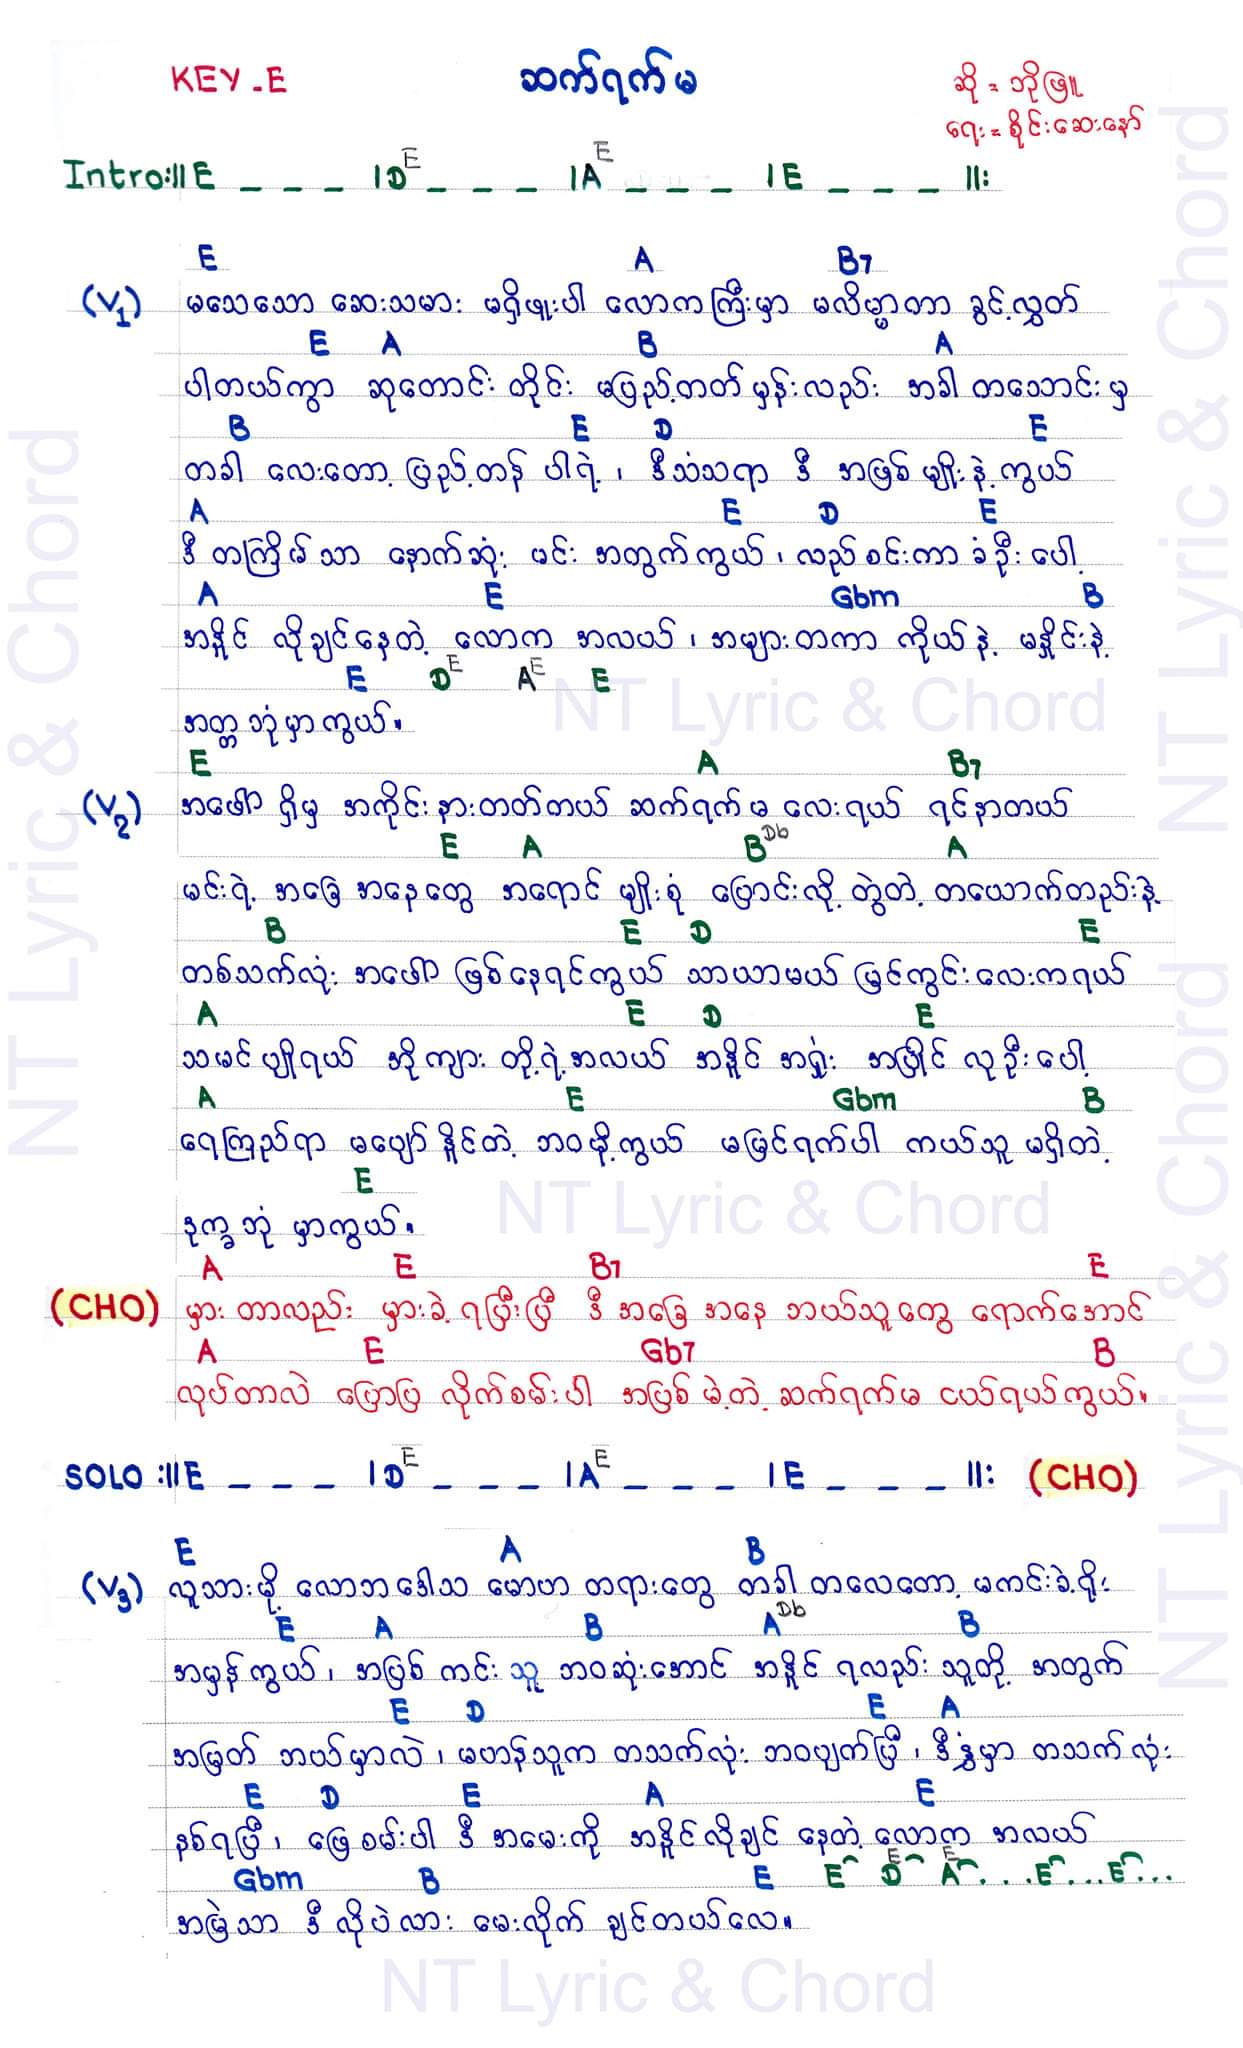 KEY - E
ဆက်ရက်မ
ဆို = ဘိုဖြူ
ရေး = စိုင်းဆေးနော်
Intro:|| E _ _ _ | D E _ _ _ | A E _ _ _ | E _ _ _ ||:
E A B7
(V1) မသေသော ဆေးသမား မရှိဖူးပါ လောကကြီးမှာ မလိမ္မာတာ ခွင့်လွှတ်
E A B A
ပါတယ်ကွာ ဆုတောင်းတိုင်း မပြည့်တတ်မှန်းလည်း အခါ တသောင်းမှ
B E D E
တခါ လေးတော့ ပြည့်တန် ပါရဲ့၊ ဒီသံသရာ ဒီ အဖြစ်မျိုးနဲ့ကွယ်
A E D E
ဒီ တကြိမ်သာ နောက်ဆုံး မင်း အတွက်ကွယ်၊ လည်စင်းကာ ခံဦးပေါ့
A E Gbm B
အနိုင် လိုချင်နေတဲ့ လောက အလယ်၊ အများတကာ ကိုယ်နဲ့ မနှိုင်းနဲ့
E D E A E E
အတ္တဘုံမှာကွယ်။
E A B7
(V2) အဖော် ရှိမှ အကိုင်းနားတတ်တယ် ဆက်ရက်မ လေးရယ် ရင်နာတယ်
E A B Db A
မင်းရဲ့ အခြေအနေတွေ အရောင် မျိုးစုံ ပြောင်းလို့ တွဲတဲ့ တယောက်တည်းနဲ့
B E D E
တစ်သက်လုံး အဖော် ဖြစ်နေရင်ကွယ် သာယာမယ် မြင်ကွင်းလေးကရယ်
A E D E
သမင်ပျိုရယ် ဘိုကျား တို့ရဲ့အလယ် အနိုင် အရှုံး အပြိုင် လုဦးပေါ့
A E Gbm B
ရေကြည်ရာ မပျော်နိုင်တဲ့ ဘဝမို့ကွယ် မမြင်ရက်ပါ ကယ်သူ မရှိတဲ့
E
ဒုက္ခဘုံ မှာကွယ်။
A E B7 E
(CHO) မှား တာလည်း မှားခဲ့ ရပြီးပြီ ဒီ အခြေ အနေ ဘယ်သူတွေ ရောက်အောင်
A E Gb7 B
လုပ်တာလဲ ပြောပြ လိုက်စမ်းပါ အပြစ်မဲ့တဲ့ ဆက်ရက်မ ငယ်ရယ်ကွယ်။
SOLO :|| E _ _ _ | D E _ _ _ | A E _ _ _ | E _ _ _ ||: (CHO)
E A B
(V3) လူသားမို့ လောဘဒေါသ မောဟ တရားတွေ တခါ တလေတော့ မကင်းခဲ့ရိုး
E A B A Db B
အမှန်ကွယ်၊ အပြစ် ကင်းသူ ဘဝဆုံးအောင် အနိုင် ရလည်း သူတို့ အတွက်
E D E A
အမြတ် ဘယ်မှာလဲ၊ မဟန်သူက တသက်လုံး ဘဝပျက်ပြီ၊ ဒီနွံမှာ တသက်လုံး
E D E A E
နစ်ရပြီ၊ ဖြေစမ်းပါ ဒီ အမေးကို အနိုင်လိုချင် နေတဲ့ လောက အလယ်
Gbm B E E D E A E . . . E . . . E . . .
အမြဲသာ ဒီလိုပဲလား မေးလိုက် ချင်တယ်လေ။
NT Lyric & Chord
NT Lyric & Chord
NT Lyric & Chord
NT Lyric & Chord
NT Lyric & Chord
NT Lyric & Chord